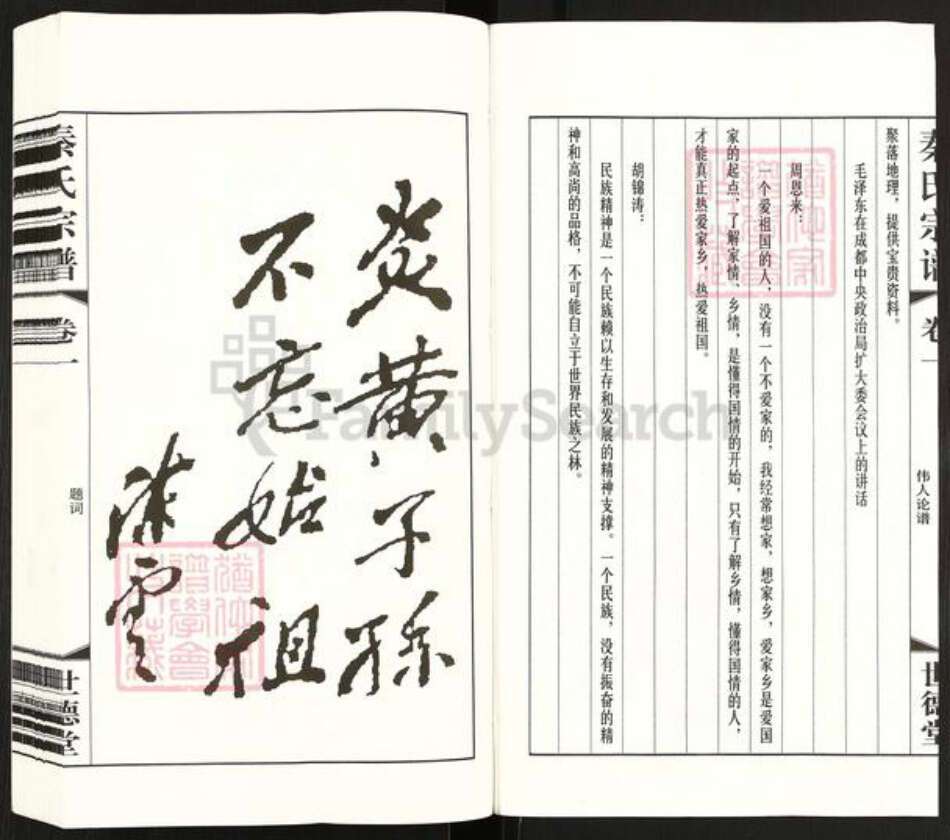 秦氏宗谱
卷一
伟人论谱
世德堂
聚落地理，提供宝贵资料。
毛泽东在成都中央政治局扩大委会议上的讲话
周恩来：
一个爱祖国的人，没有一个不爱家的，我经常想家，想家乡，爱家乡是爱国
家的起点，了解家情、乡情，是懂得国情的开始，只有了解乡情，懂得国情的人，
才能真正热爱家乡，热爱祖国。
胡锦涛：
民族精神是一个民族赖以生存和发展的精神支撑。一个民族，没有振奋的精
神和高尚的品格，不可能自立于世界民族之林。
炎黄子孙
不忘始祖
陈云
秦氏宗谱
卷一
题词
世德堂
FamilySearch